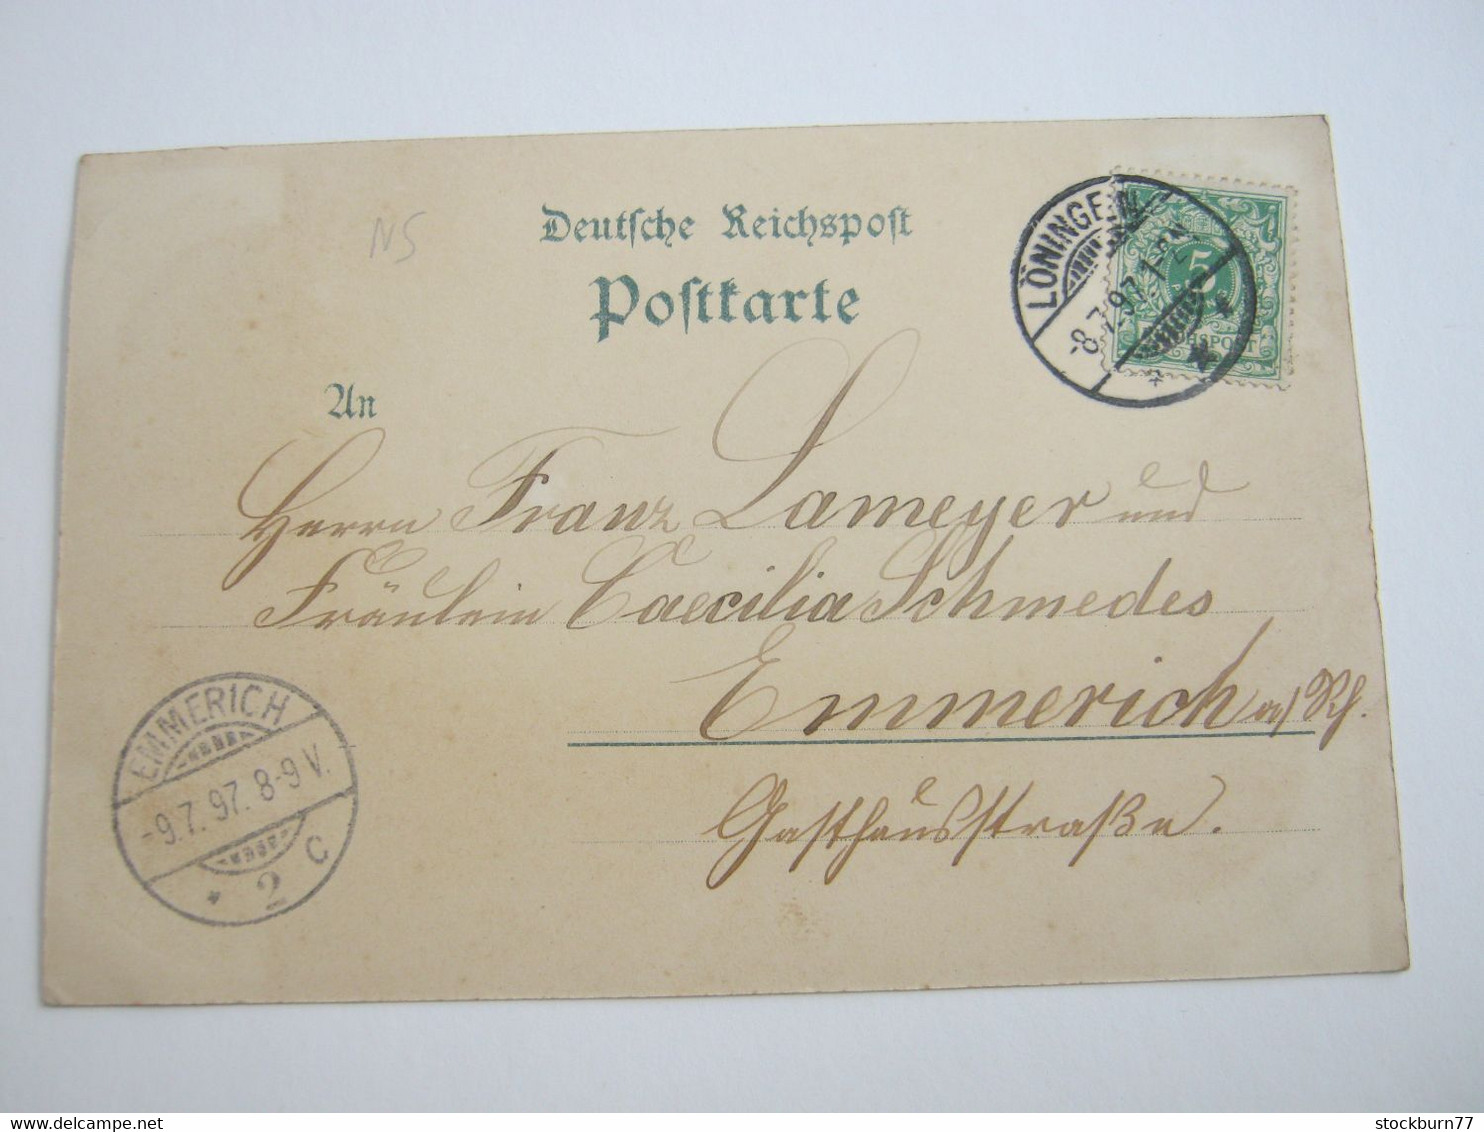 NS
Deutſche Reichspoſt
Poſtkarte
LÖNINGEN
-8.7.97. 7-8N.
5
REICHSPOST
An
Herrn Franz Lameyer und
Fräulein Caecilia Schmedes
Emmerich a/Rh.
Gasthausstraße.
EMMERICH
-9.7.97. 8-9 V.
* 2 c
stockburn77